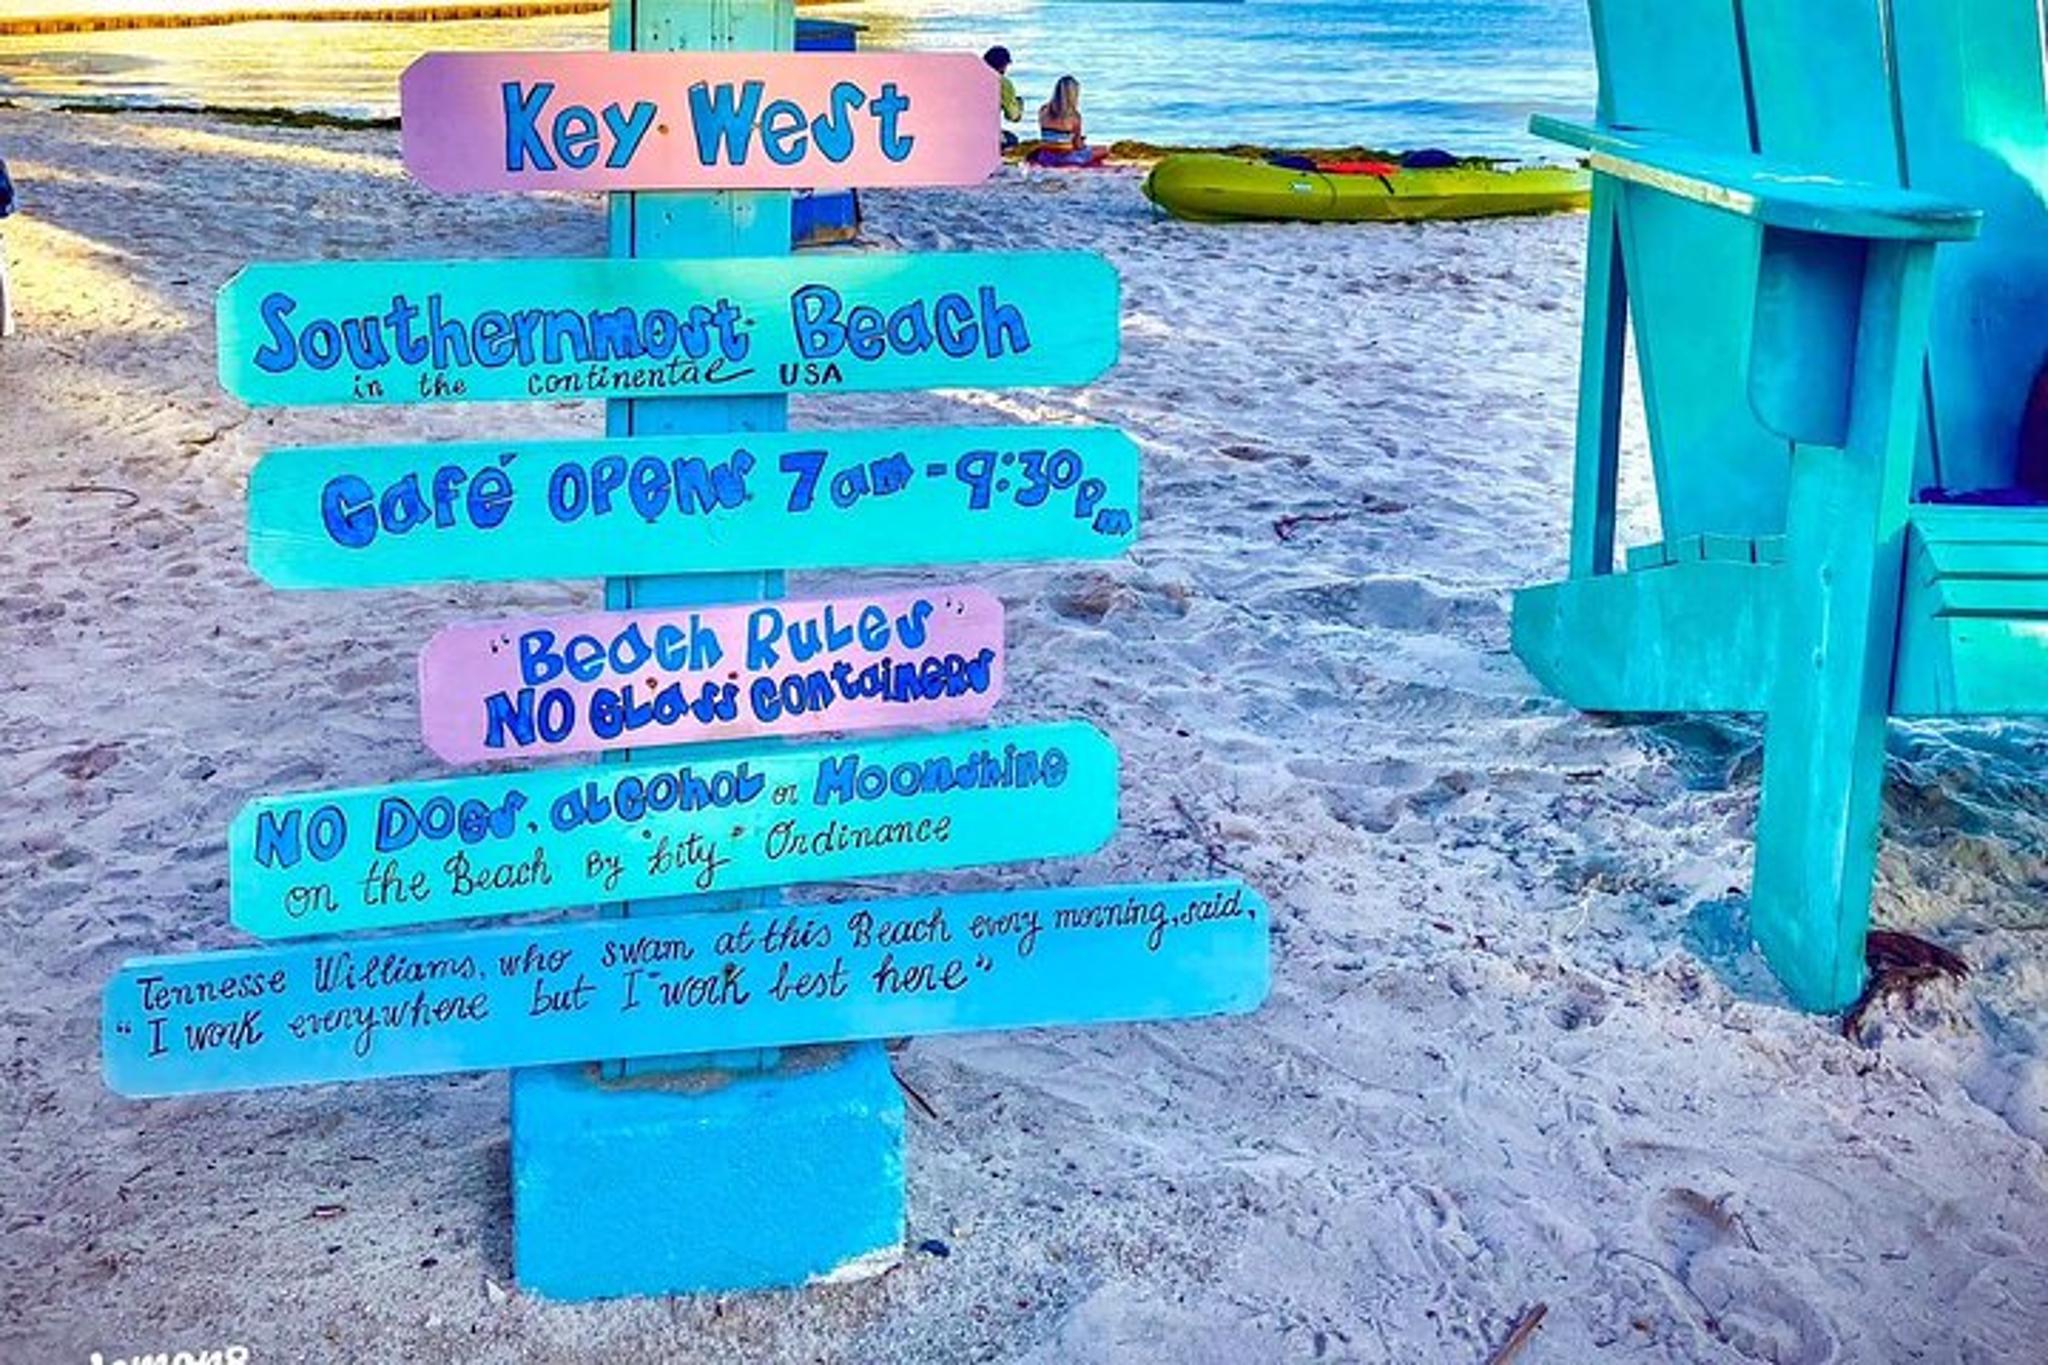 Key West
Southernmost Beach
in the continental USA
Café opens 7am-9:30pm
"Beach Rules"
NO Glass containers
NO DOGS, alcohol or Moonshine
on the Beach By "City" Ordinance
Tennesse Williams, who swam at this Beach every morning, said,
"I work everywhere but I work best here"